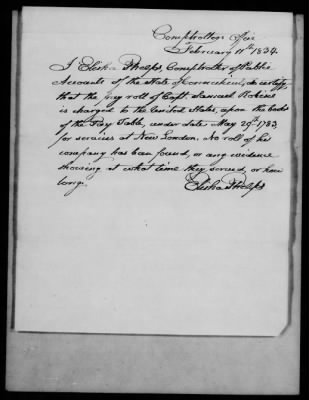 Comptrollers Office
February 11th 1834.
I Elisha Phelps, Comptroller of Public
Accounts of the State of Connecticut, do certify
that the pay roll of Capt Samuel
is charged to the United States, upon the books
of the Pay Table, under date May 29th 1783,
for services at New London. No roll of his
company has been found, or any evidence
showing at what time they served, or how
long.
Elisha Phelps